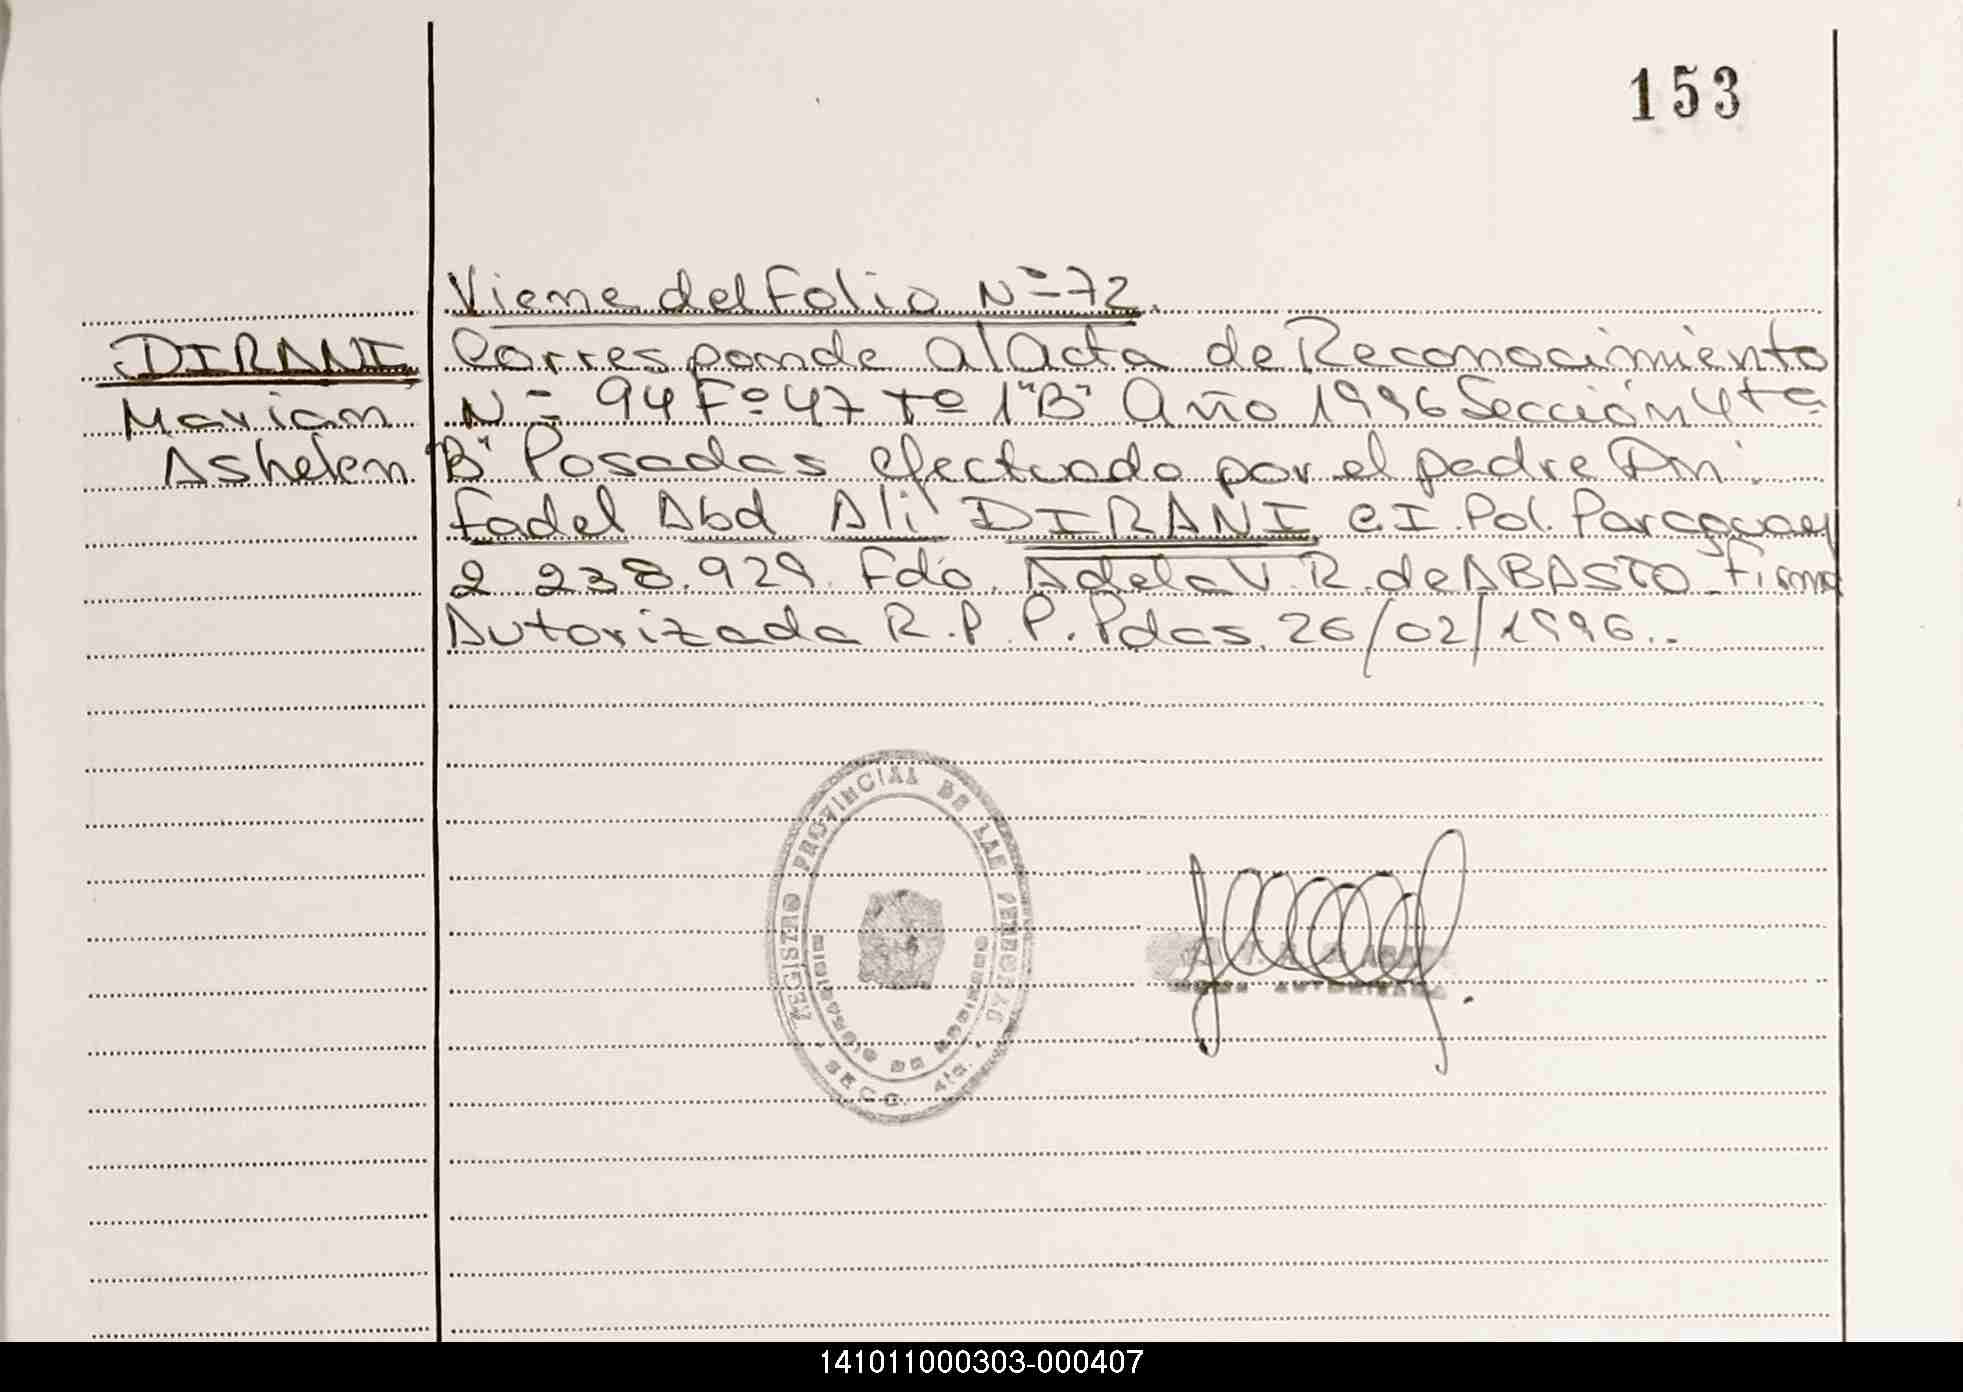 153
Viene del Folio Nº 72.
DIRANI
Mariam
Ashelen
Corresponde al Acta de Reconocimiento
Nº 94 Fº 47 tº 1"B" Año 1996 Sección 4ta
"B" Posadas efectuado por el padre Dn.
Fadel Abd Ali DIRANI C.I. Pol. Paraguay
2.238.929. Fdo. Adela V. R. de ABASTO. Firma
Autorizada R.P.P. Pdas. 26/02/1996..
REGISTRO PROVINCIAL DE LAS PERSONAS
DE MISIONES
SECC. 4ta.
141011000303-000407